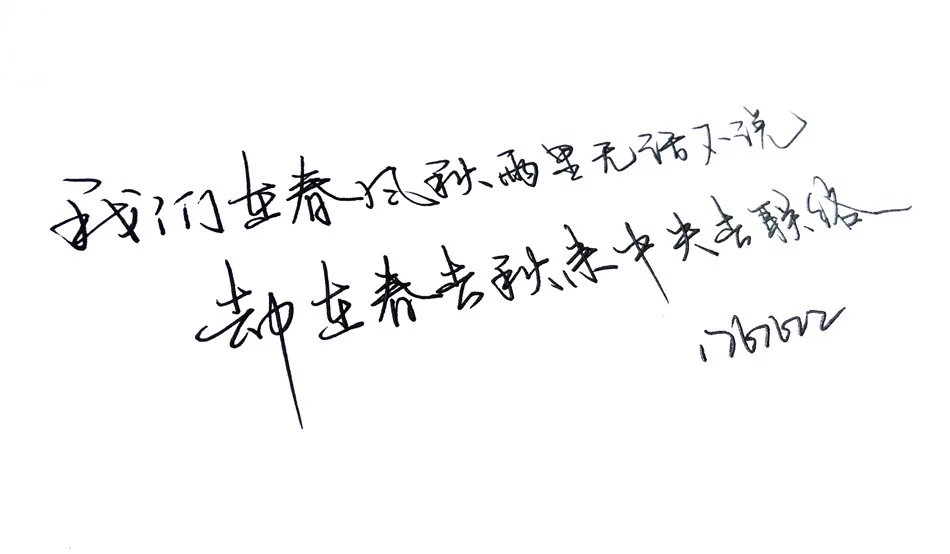 我们在春风秋雨里无话不说
却在春去秋来中失去联络